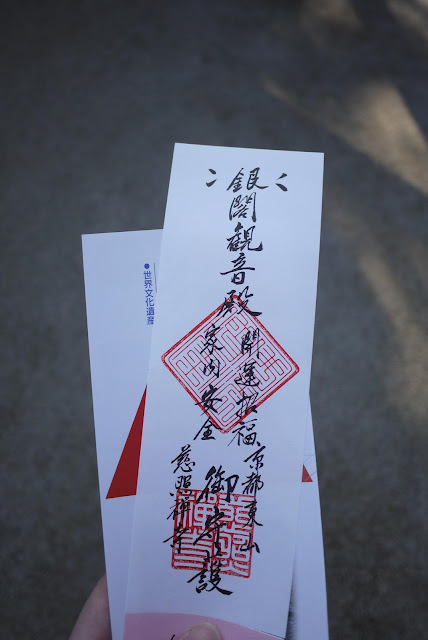 銀閣観音殿
開運招福
京都東山
家内安全
御守護
慈照禅寺
●世界文化遺産